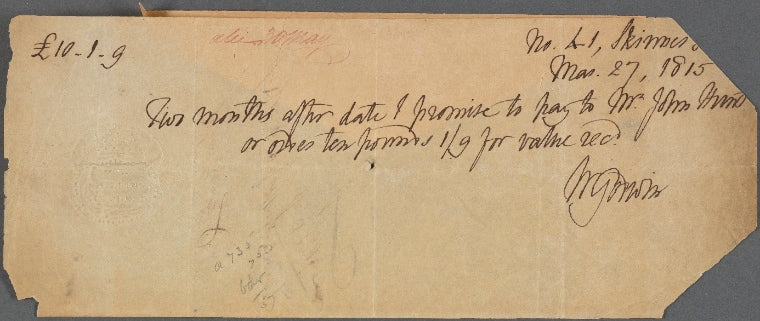 £10-1-9
30 May
No. 41, Skinner S
Mar. 27, 1815
Two months after date I promise to pay to Mr. John Hunt
or order ten pounds 1/9 for value recd.
WGodwin
a 733